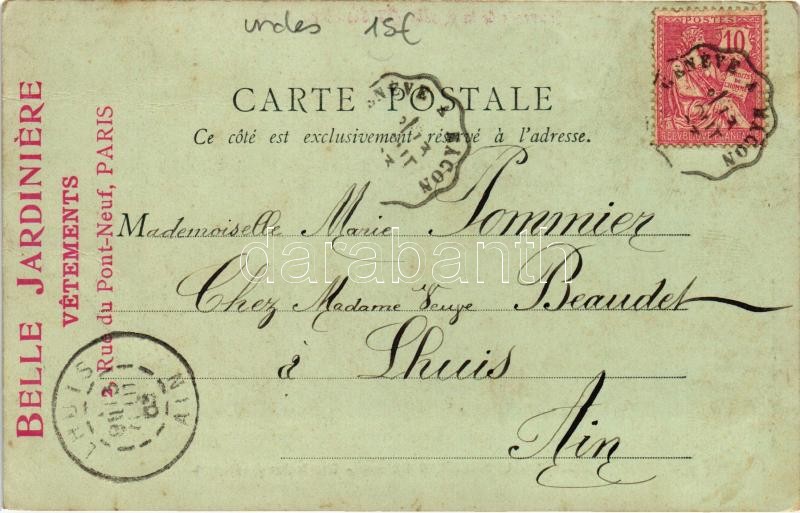 undes 15€
BELLE JARDINIÈRE
VÊTEMENTS
2 Rue du Pont-Neuf, PARIS
CARTE POSTALE
Ce côté est exclusivement réservé à l'adresse.
POSTES
10
DROITS DE L'HOMME
REPUBLIQUE FRANÇAISE
GENÈVE A MACON
GENÈVE A MACON
Mademoiselle Marie Pommier
Chez Madame Veuve Beaudet
à Lhuis
Ain
LHUIS
AIN
darabanth